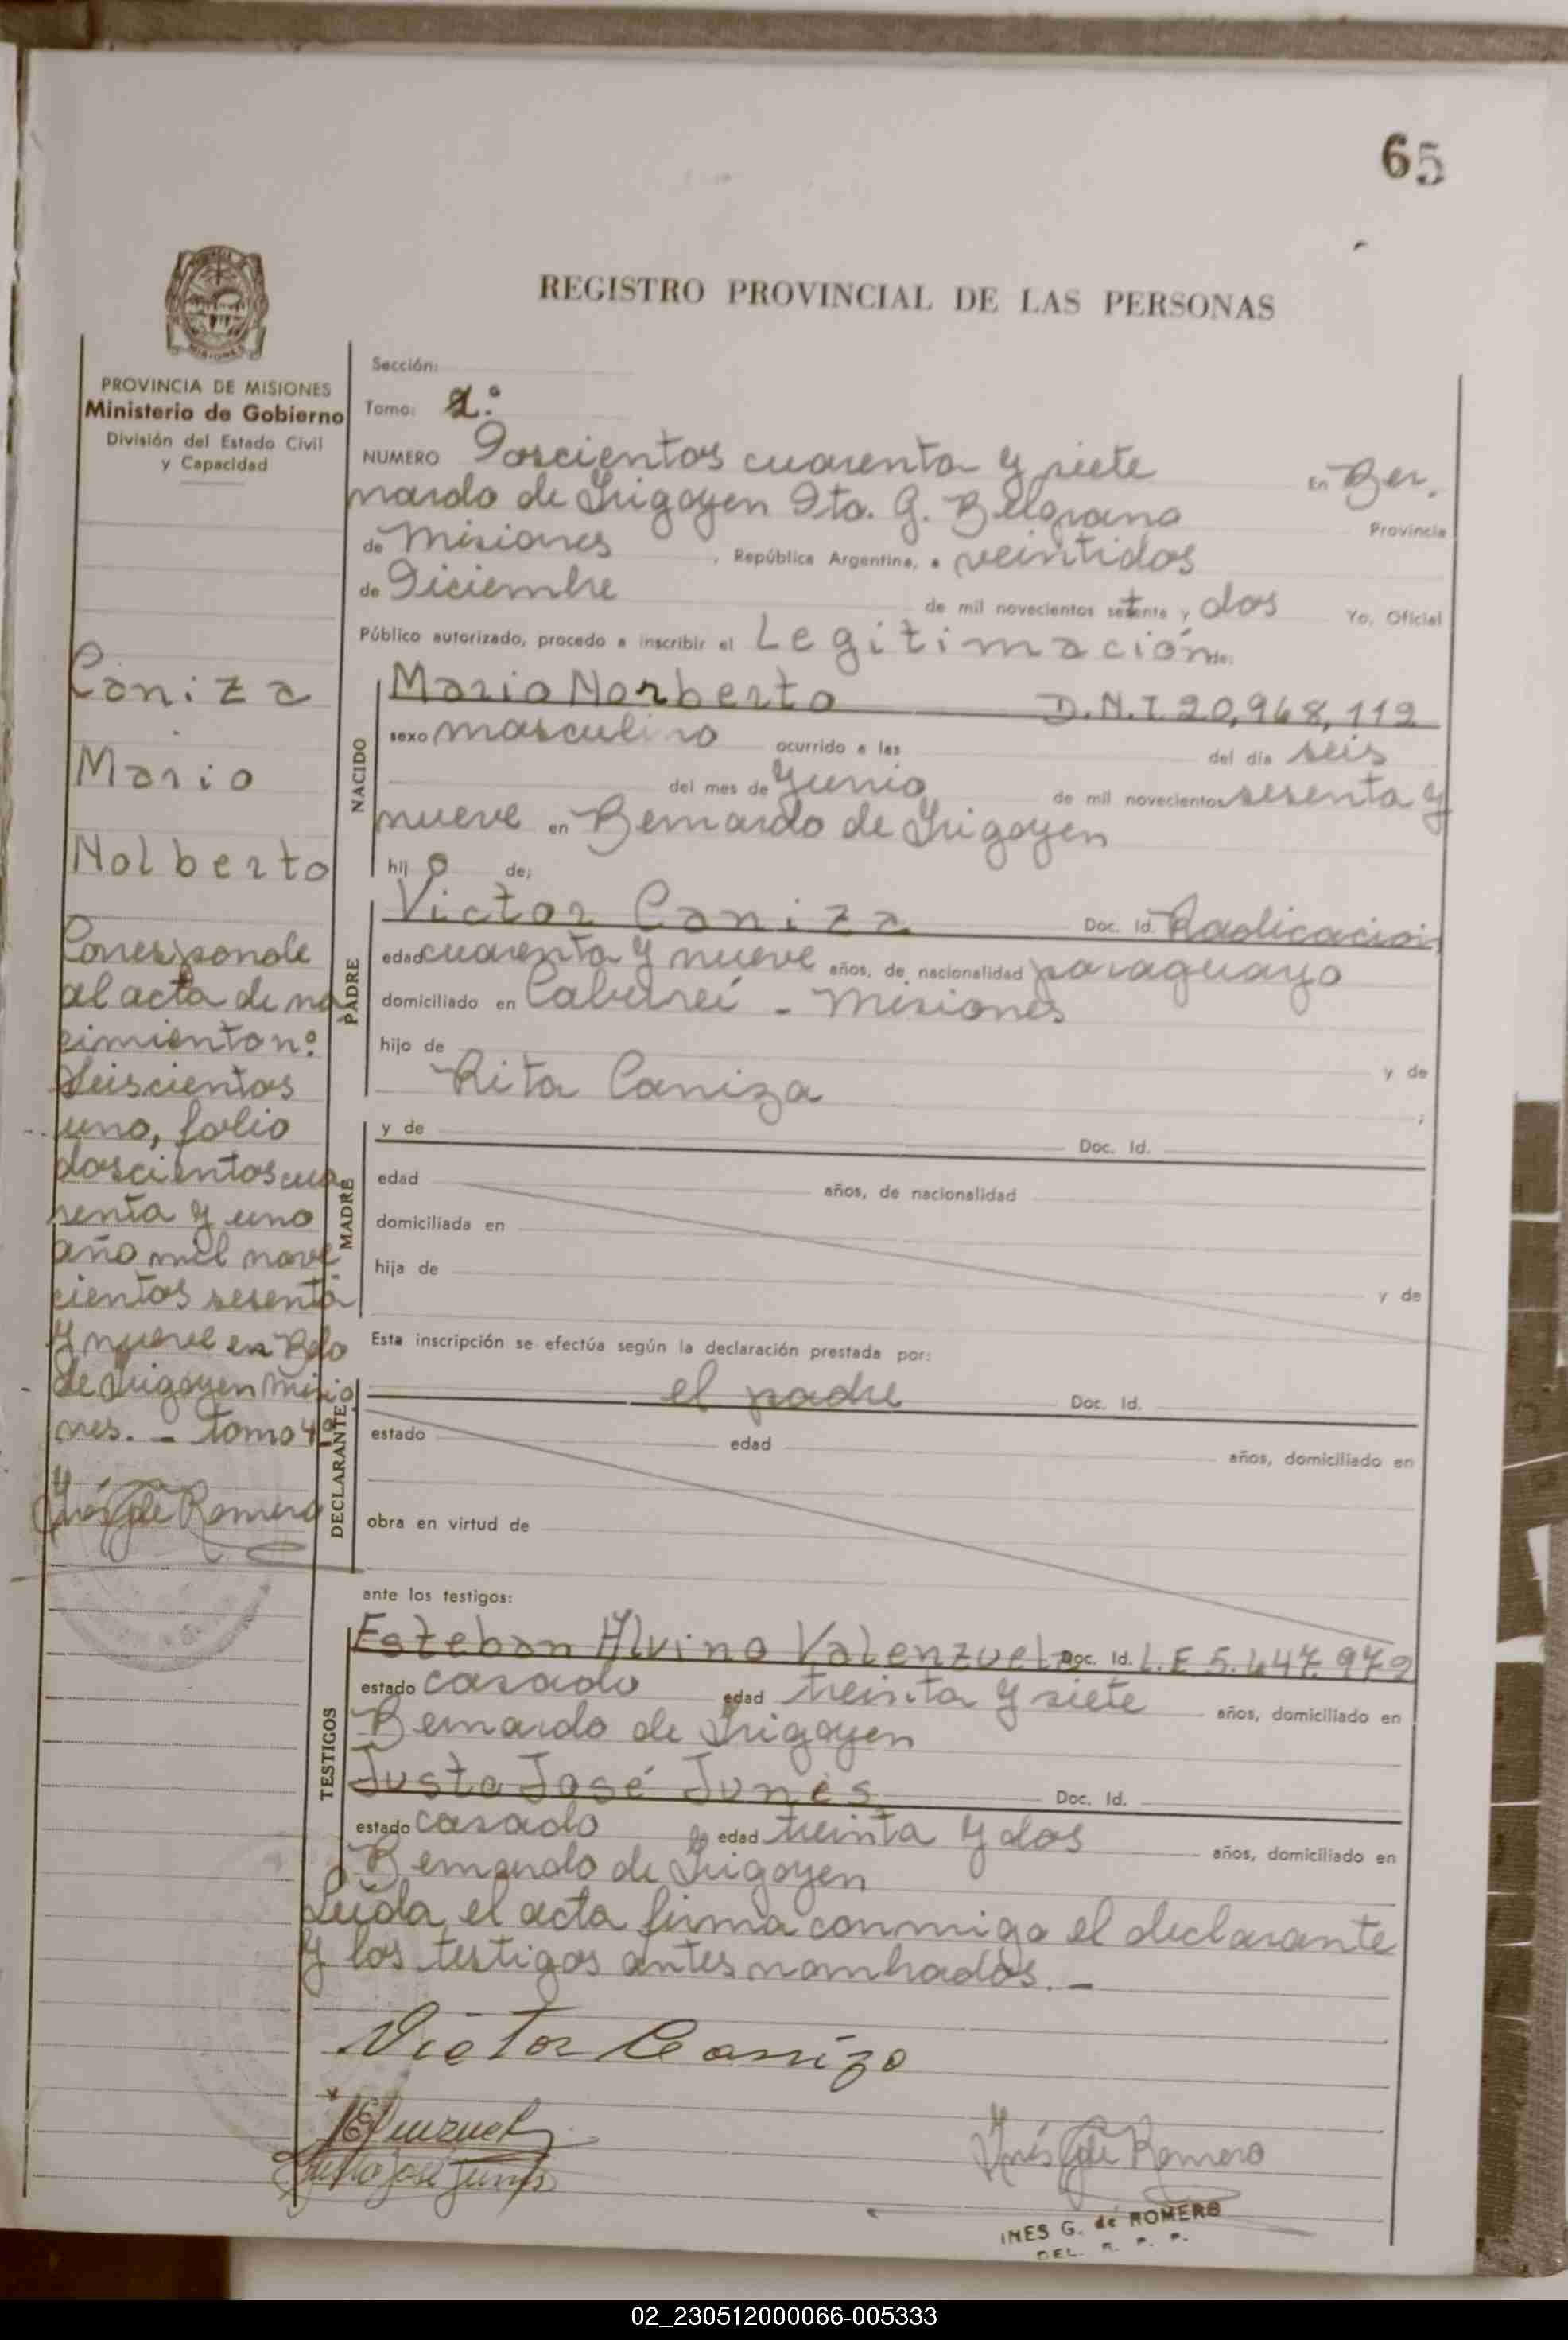 65
REGISTRO PROVINCIAL DE LAS PERSONAS
PROVINCIA DE MISIONES
Ministerio de Gobierno
División del Estado Civil
y Capacidad
Caniza
Mario
Nolberto
Corresponde
al acta de na
cimiento nº
seiscientos
uno, folio
doscientos cua
renta y uno
año mil nove
cientos sesenta
y nueve en Bdo
de Irigoyen Misio
nes. - Tomo 4º
Inés G de Romero
Sección:
Tomo: 2º
NUMERO Doscientos cuarenta y siete En Ber.
nardo de Irigoyen Dto. G. Belgrano Provincia
de Misiones, República Argentina, a veintidos
de Diciembre de mil novecientos setenta y dos Yo, Oficial
Público autorizado, procedo a inscribir el Legitimación de:
NACIDO
Mario Norberto D.N.I 20,968,112
sexo masculino ocurrido a las del día seis
del mes de Junio de mil novecientos sesenta y
nueve en Bernardo de Irigoyen
hij o de;
PADRE
Victor Caniza Doc. Id. Radicacion
edad cuarenta y nueve años, de nacionalidad paraguayo
domiciliado en Cabureí - Misiones
hijo de y de
Rita Caniza ;
MADRE
y de Doc. Id.
edad años, de nacionalidad
domiciliada en
hija de y de
Esta inscripción se efectúa según la declaración prestada por:
DECLARANTE
el padre Doc. Id.
estado edad años, domiciliado en
obra en virtud de
ante los testigos:
TESTIGOS
Esteban Alvino Valenzuela Doc. Id. L.E 5.447.972
estado casado edad treinta y siete años, domiciliado en
Bernardo de Irigoyen
Justo José Junes Doc. Id.
estado casado de edad treinta y dos años, domiciliado en
Bernardo de Irigoyen
Leída el acta firma conmigo el declarante
y los testigos antes nombrados. -
Victor Canizo
Justo José Junes
Inés G de Romero
INES G. de ROMERO
DEL. R. P. P.
02_230512000066-005333